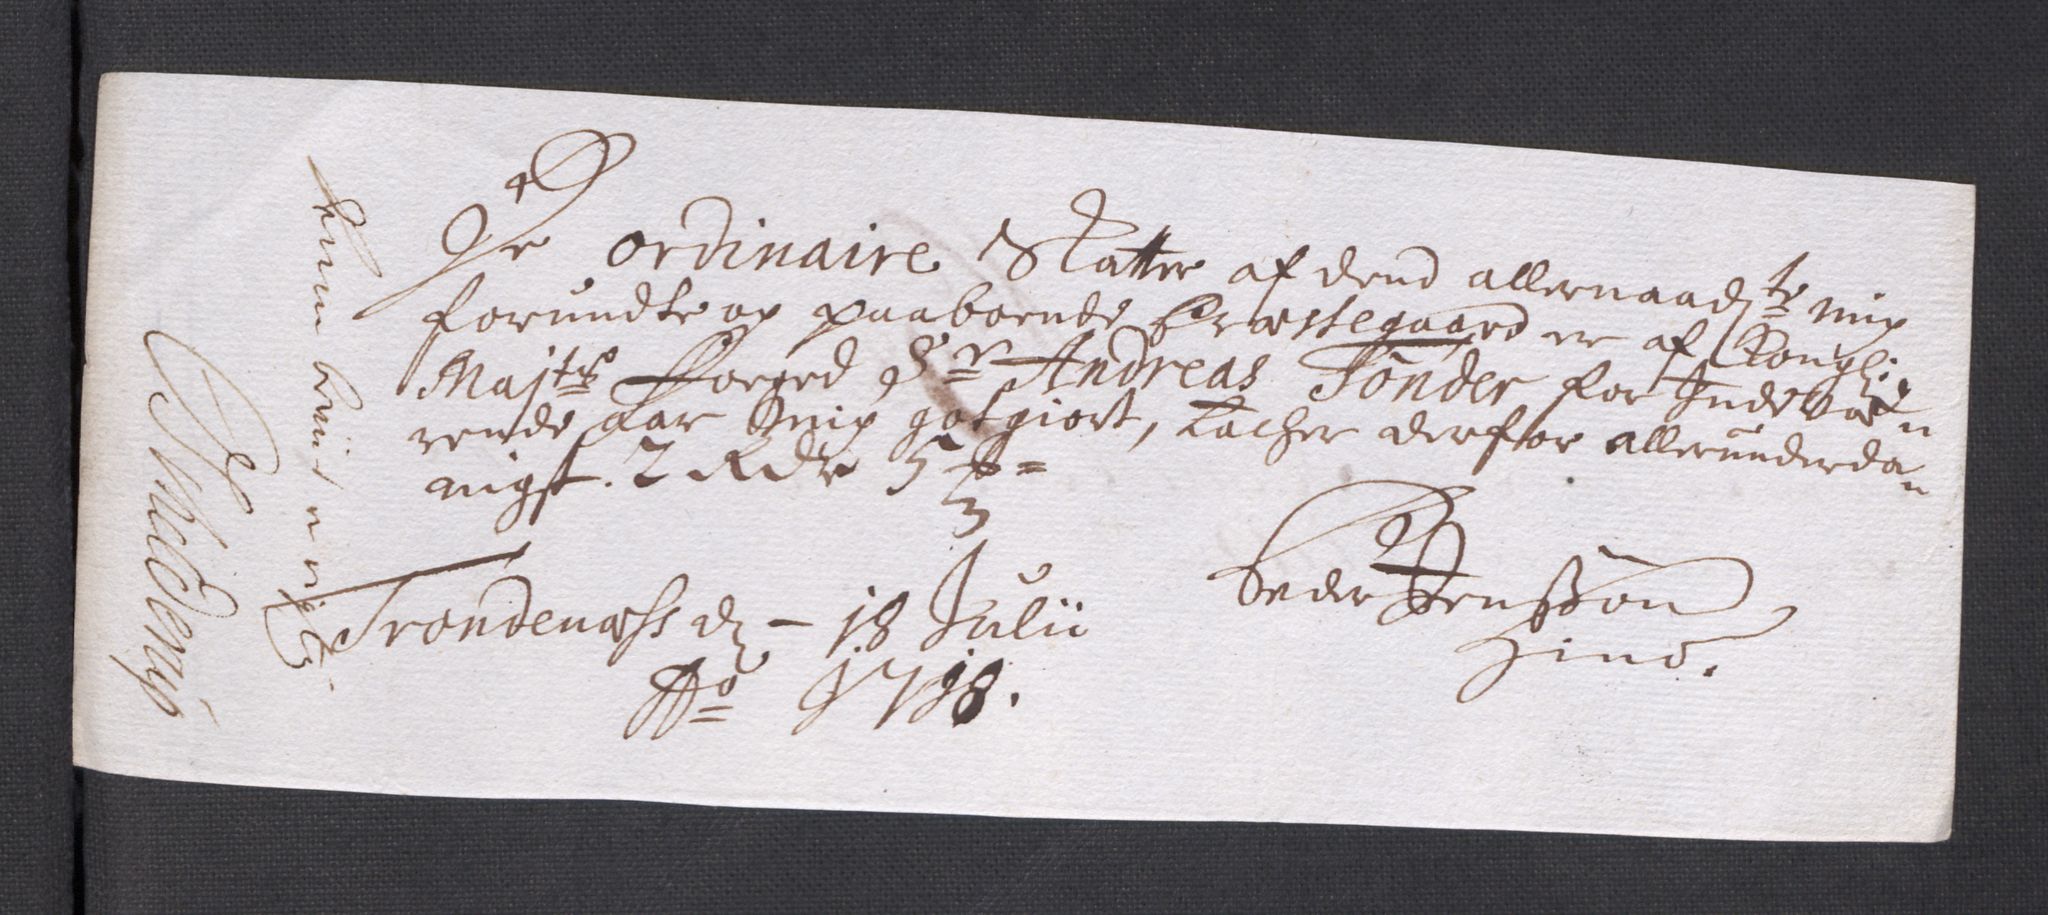 De ordinaire Skatter af dend allernaadste mig
forundte og paaboende Præstegaard er af Kongl:
Majts Foged Sr Andreas Tönder for Indevæ-
rende Aar mig godgiort, tacher derfor allerunderda-
nigst. 2 Rdr 5
Trondenæss d. 18 Julii
Ao 1718.
Peder Jensson
Hind.